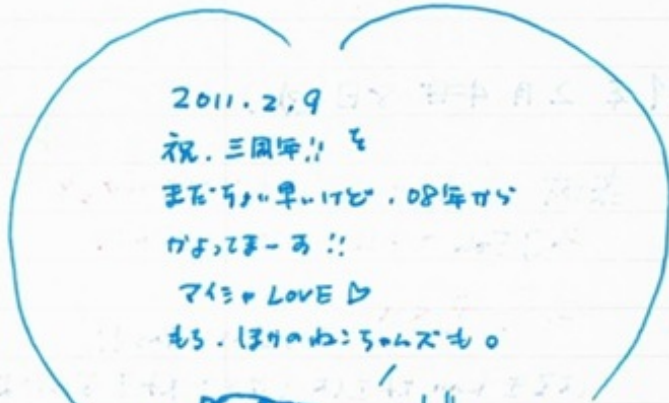 2011.2.9
祝.三周年!! を
まだちょい早いけど.08年から
かよってまーす!!
マイシャ LOVE ♡
もち.ほかのねこちゃんズも。